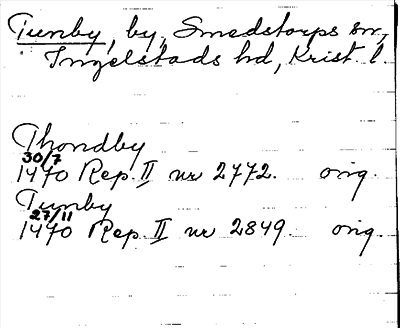 Tunby, by, Smedstorps sn,
Ingelstads hd, Krist. l.
Thondby
30/7
1470 Rep. II nr 2772. orig.
Tunby
27/11
1470 Rep. II nr 2849. orig.